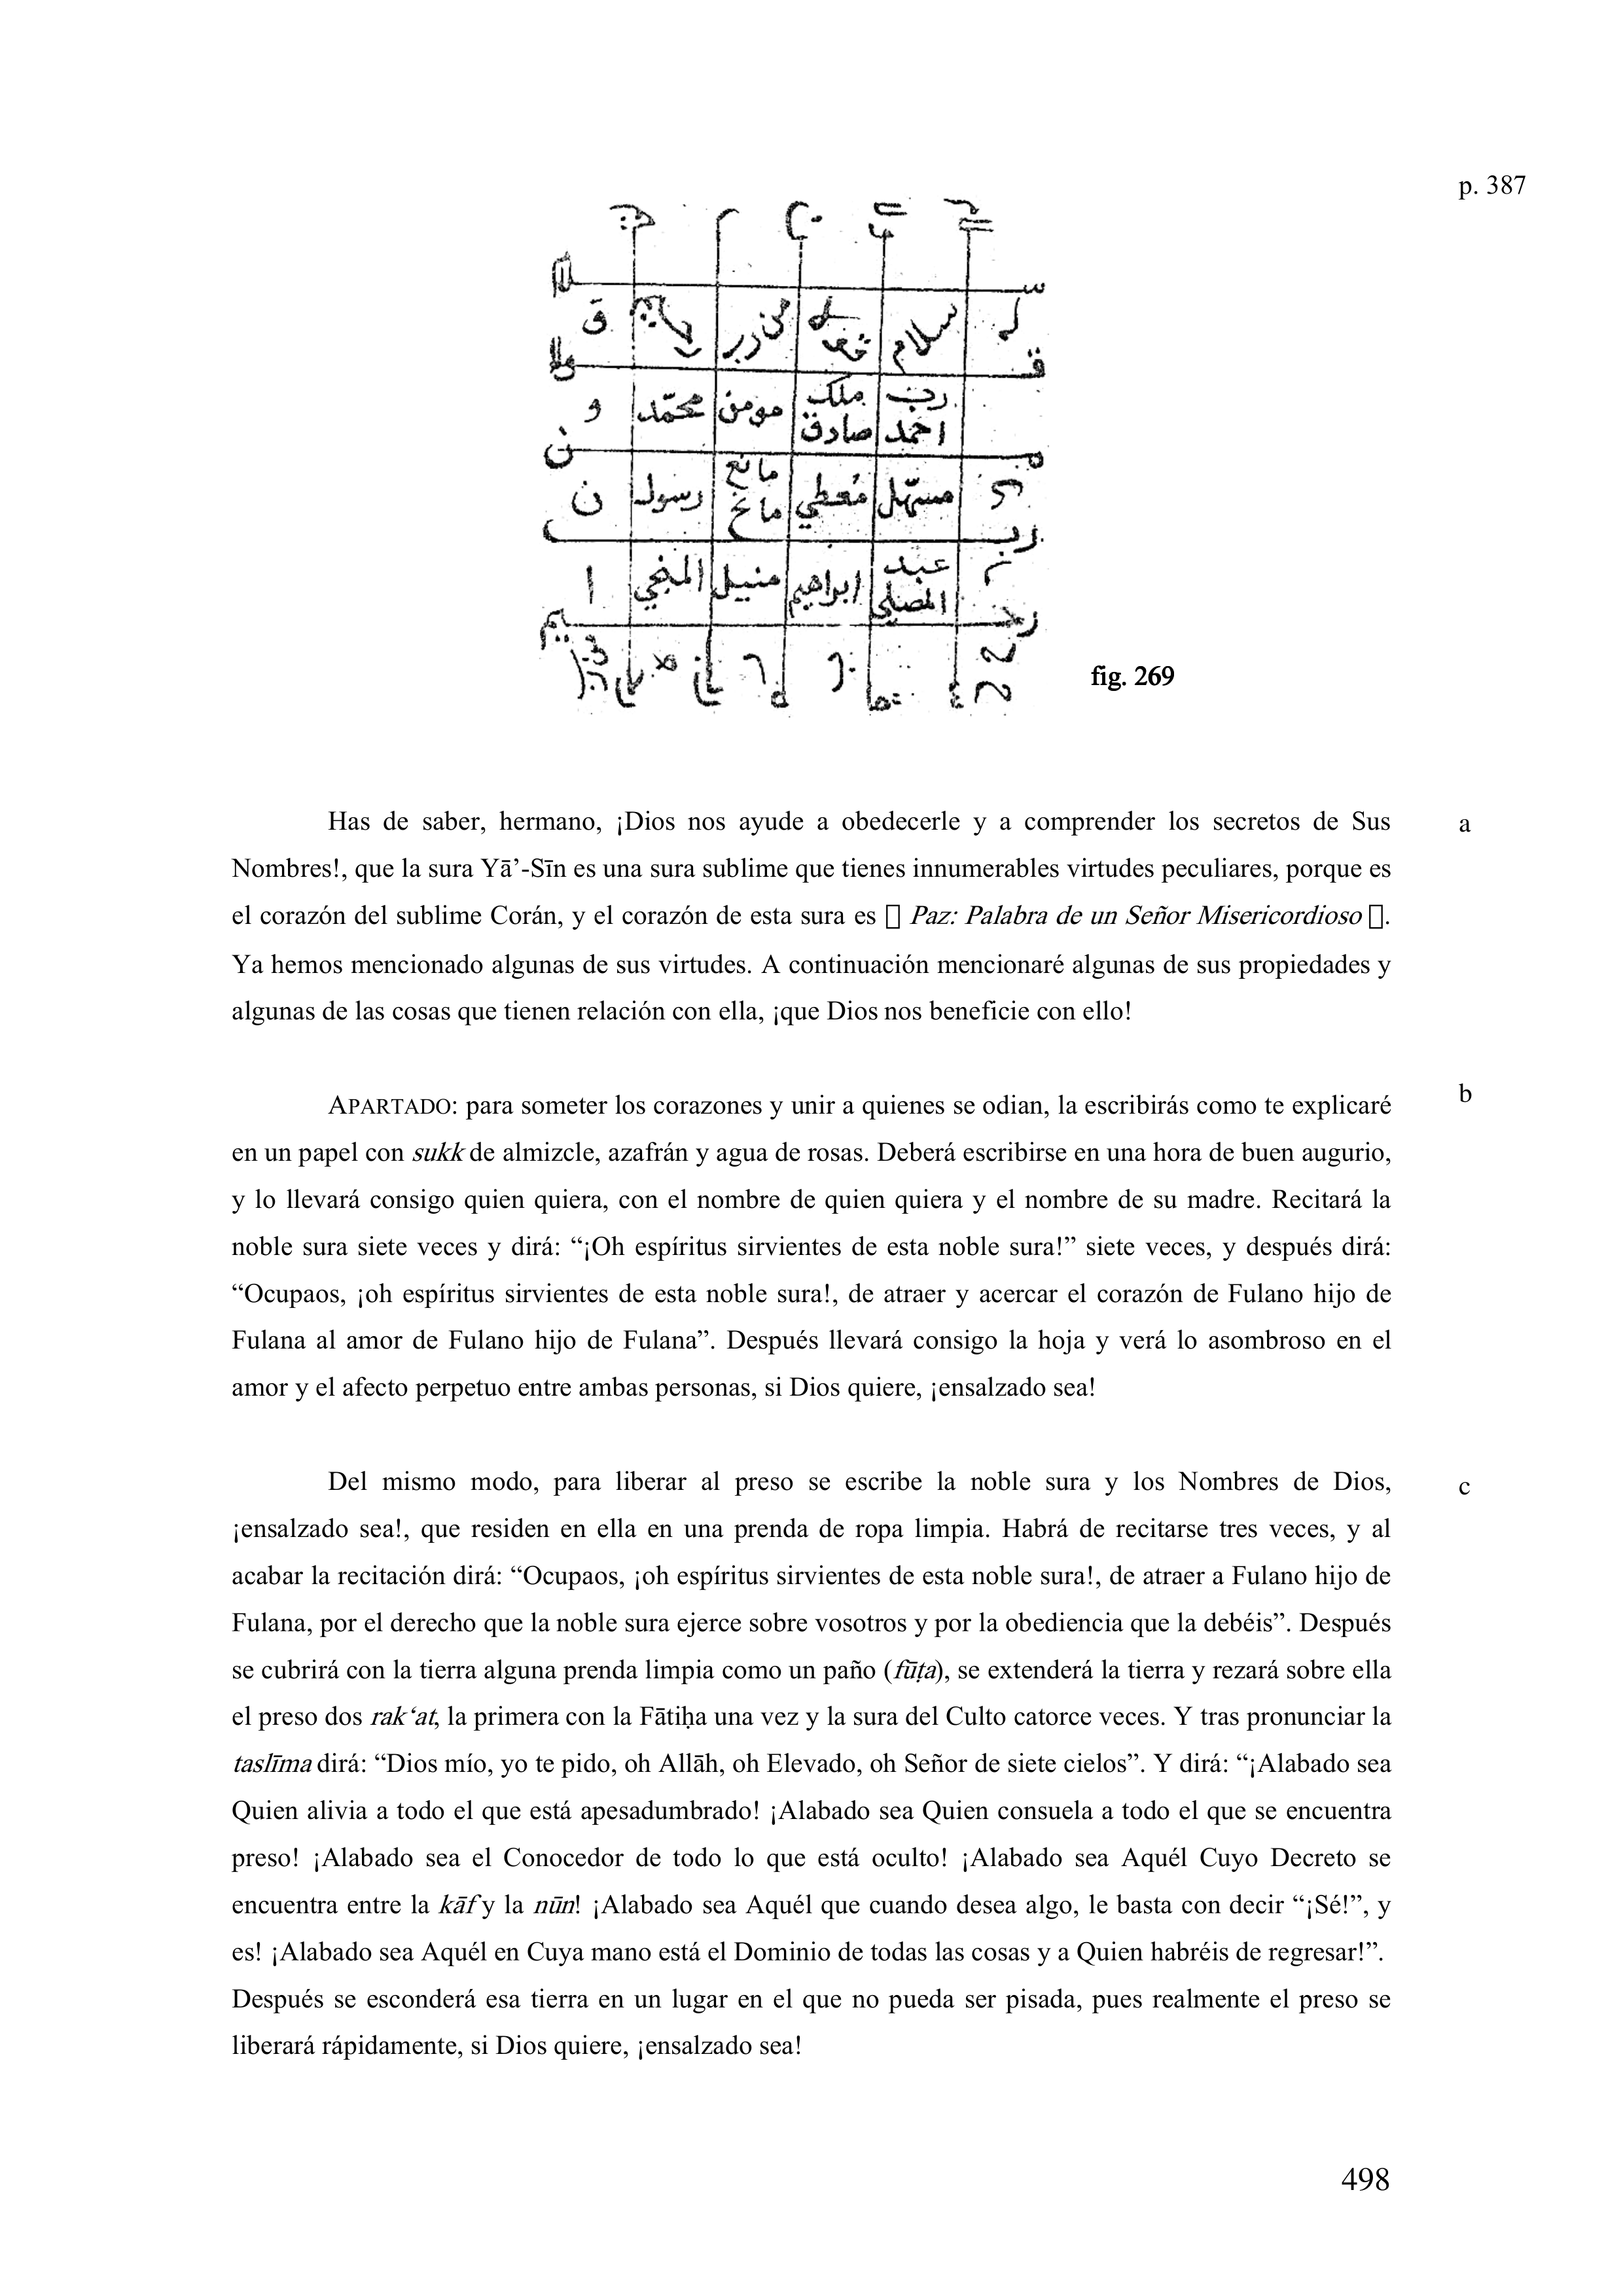 p. 387
سلام
رب
احمد
ملك
صادق
مومن
محمّد
و
مسهّل
مُعطي
مانع
رسول
ن
عبد
المصلي
ابراهيم
منيل
المنجي
ا
fig. 269
Has de saber, hermano, ¡Dios nos ayude a obedecerle y a comprender los secretos de Sus
a
Nombres!, que la sura Yā’-Sīn es una sura sublime que tienes innumerables virtudes peculiares, porque es
el corazón del sublime Corán, y el corazón de esta sura es  Paz: Palabra de un Señor Misericordioso .
Ya hemos mencionado algunas de sus virtudes. A continuación mencionaré algunas de sus propiedades y
algunas de las cosas que tienen relación con ella, ¡que Dios nos beneficie con ello!
b
APARTADO: para someter los corazones y unir a quienes se odian, la escribirás como te explicaré
en un papel con sukk de almizcle, azafrán y agua de rosas. Deberá escribirse en una hora de buen augurio,
y lo llevará consigo quien quiera, con el nombre de quien quiera y el nombre de su madre. Recitará la
noble sura siete veces y dirá: “¡Oh espíritus sirvientes de esta noble sura!” siete veces, y después dirá:
“Ocupaos, ¡oh espíritus sirvientes de esta noble sura!, de atraer y acercar el corazón de Fulano hijo de
Fulana al amor de Fulano hijo de Fulana”. Después llevará consigo la hoja y verá lo asombroso en el
amor y el afecto perpetuo entre ambas personas, si Dios quiere, ¡ensalzado sea!
Del mismo modo, para liberar al preso se escribe la noble sura y los Nombres de Dios,
c
¡ensalzado sea!, que residen en ella en una prenda de ropa limpia. Habrá de recitarse tres veces, y al
acabar la recitación dirá: “Ocupaos, ¡oh espíritus sirvientes de esta noble sura!, de atraer a Fulano hijo de
Fulana, por el derecho que la noble sura ejerce sobre vosotros y por la obediencia que la debéis”. Después
se cubrirá con la tierra alguna prenda limpia como un paño (fūṭa), se extenderá la tierra y rezará sobre ella
el preso dos rak‘at, la primera con la Fātiḥa una vez y la sura del Culto catorce veces. Y tras pronunciar la
taslīma dirá: “Dios mío, yo te pido, oh Allāh, oh Elevado, oh Señor de siete cielos”. Y dirá: “¡Alabado sea
Quien alivia a todo el que está apesadumbrado! ¡Alabado sea Quien consuela a todo el que se encuentra
preso! ¡Alabado sea el Conocedor de todo lo que está oculto! ¡Alabado sea Aquél Cuyo Decreto se
encuentra entre la kāf y la nūn! ¡Alabado sea Aquél que cuando desea algo, le basta con decir “¡Sé!”, y
es! ¡Alabado sea Aquél en Cuya mano está el Dominio de todas las cosas y a Quien habréis de regresar!”.
Después se esconderá esa tierra en un lugar en el que no pueda ser pisada, pues realmente el preso se
liberará rápidamente, si Dios quiere, ¡ensalzado sea!
498